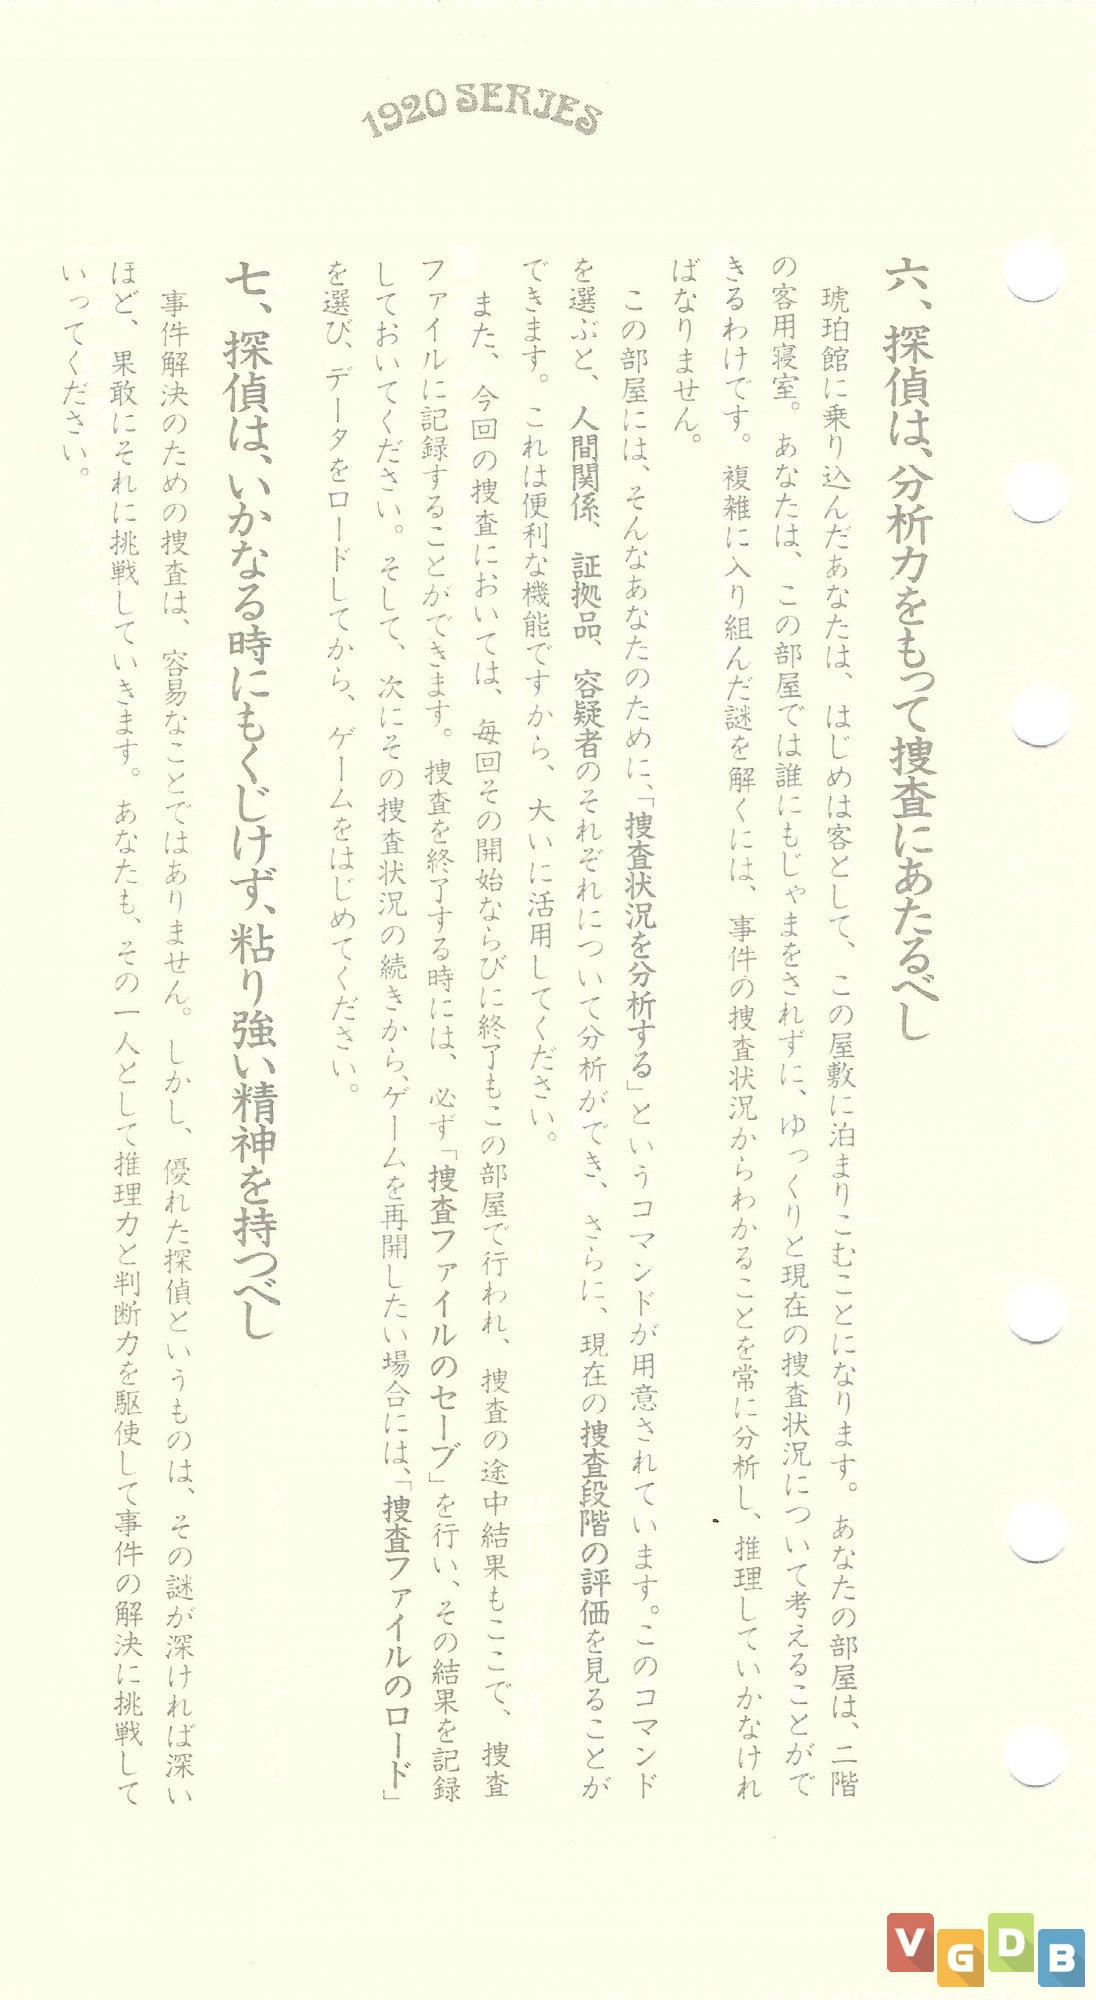 1920 SERIES
六、探偵は、分析力をもって捜査にあたるべし
　琥珀館に乗り込んだあなたは、はじめは客として、この屋敷に泊まりこむことになります。あなたの部屋は、二階
の客用寝室。あなたは、この部屋では誰にもじゃまをされずに、ゆっくりと現在の捜査状況について考えることがで
きるわけです。複雑に入り組んだ謎を解くには、事件の捜査状況からわかることを常に分析し、推理していかなけれ
ばなりません。
　この部屋には、そんなあなたのために、「捜査状況を分析する」というコマンドが用意されています。このコマンド
を選ぶと、人間関係、証拠品、容疑者のそれぞれについて分析ができ、さらに、現在の捜査段階の評価を見ることが
できます。これは便利な機能ですから、大いに活用してください。
　また、今回の捜査においては、毎回その開始ならびに終了もこの部屋で行われ、捜査の途中結果もここで、捜査
ファイルに記録することができます。捜査を終了する時には、必ず「捜査ファイルのセーブ」を行い、その結果を記録
しておいてください。そして、次にその捜査状況の続きから、ゲームを再開したい場合には、「捜査ファイルのロード」
を選び、データをロードしてから、ゲームをはじめてください。
七、探偵は、いかなる時にもくじけず、粘り強い精神を持つべし
　事件解決のための捜査は、容易なことではありません。しかし、優れた探偵というものは、その謎が深ければ深い
ほど、果敢にそれに挑戦していきます。あなたも、その一人として推理力と判断力を駆使して事件の解決に挑戦して
いってください。
VGDB